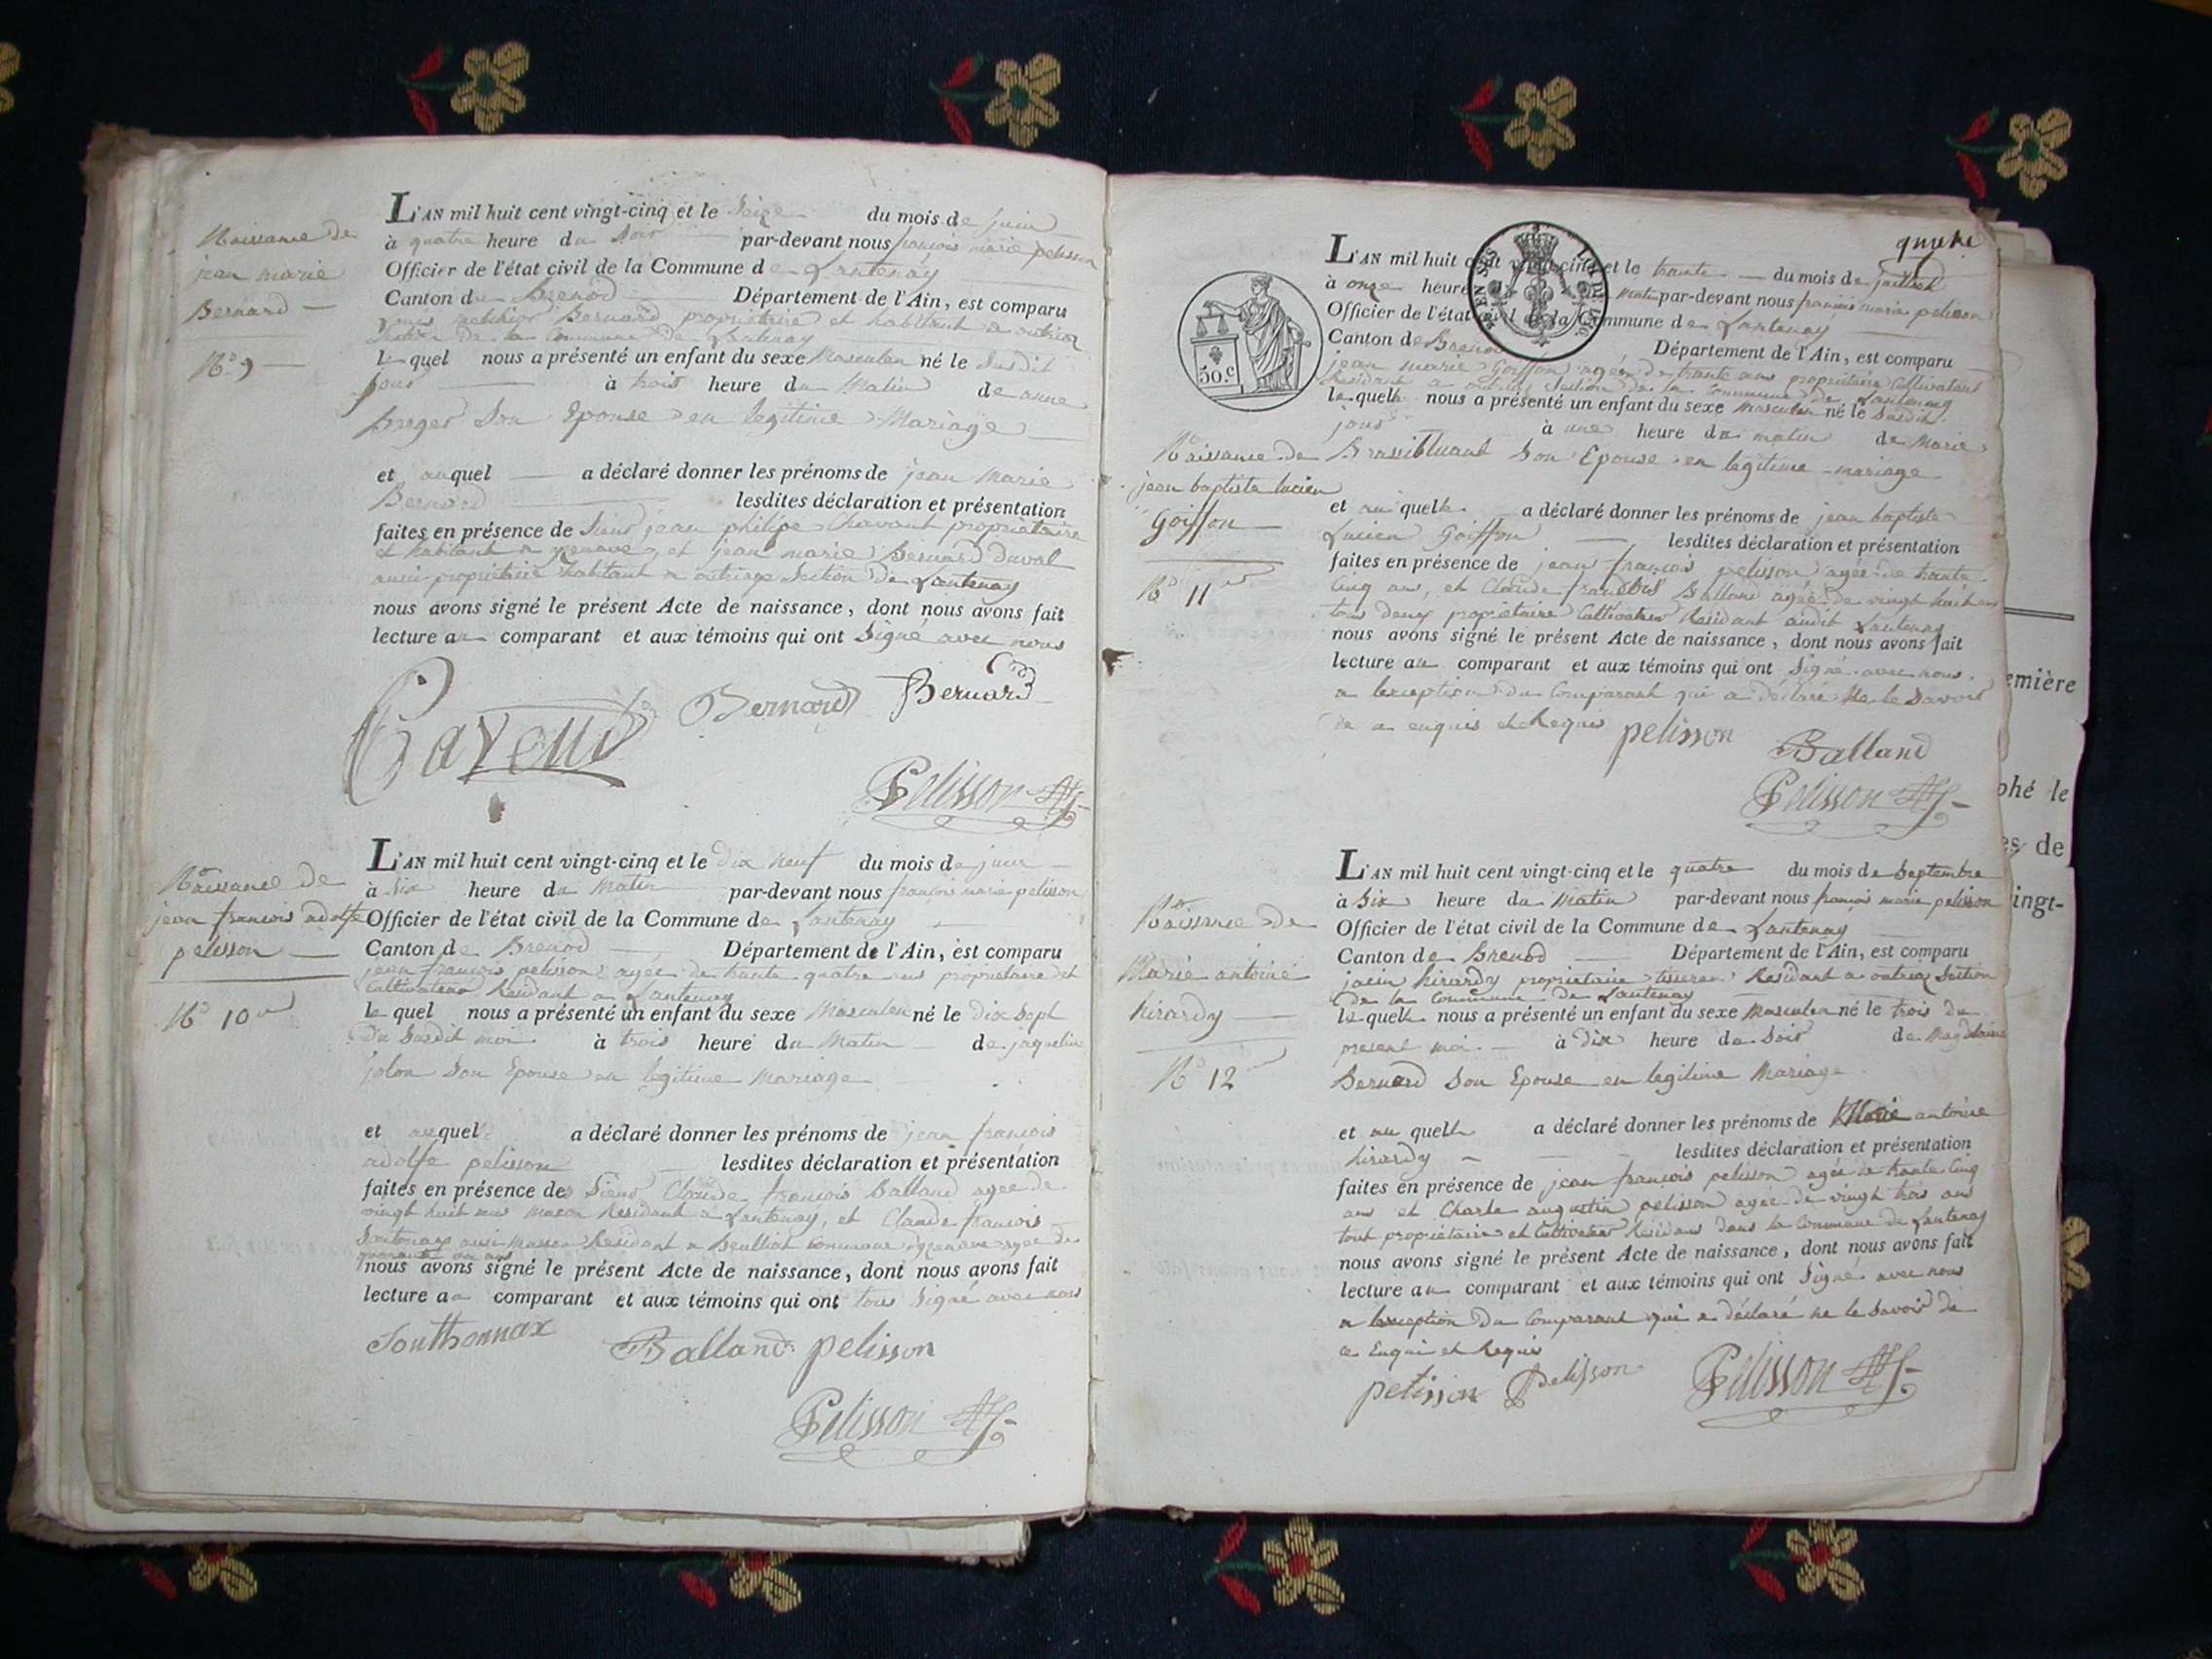 Naissance de
jean marie
Bernard
No 9
L'AN mil huit cent vingt-cinq et le Seize du mois de juin
à quatre heure du Soir par-devant nous françois marie pelisson
Officier de l'état civil de la Commune de Lantenay
Canton de Brenod Département de l'Ain, est comparu
Louis melchior Bernard propriétaire et habitant a outriaz
Section de la Commune de Lantenay
lequel nous a présenté un enfant du sexe Masculin né le Susdit
jour à trois heure du Matin de anne
Son Epouse en legitime Mariage
et auquel a déclaré donner les prénoms de jean Marie
Bernard lesdites déclaration et présentation
faites en présence de Sieur jean philipe Chavant propriétaire
et habitant a et jean marie Bernard duval
aussi propriétaire habitant a outriaz Section de Lantenay
nous avons signé le présent Acte de naissance, dont nous avons fait
lecture au comparant et aux témoins qui ont Signé avec nous
Bernard Bernard
Pelisson
Naissance de
jean francois adolfe
pelisson
No 10
L'AN mil huit cent vingt-cinq et le Dix neuf du mois de juin
à Six heure du Matin par-devant nous françois marie pelisson
Officier de l'état civil de la Commune de Lantenay
Canton de Brenod Département de l'Ain, est comparu
jean françois pelisson agée de trante quatre ans propriétaire et
Cultivateur Residant a Lantenay
lequel nous a présenté un enfant du sexe Masculin né le Dix Sept
Du Susdit moi à trois heure du Matin de jaqueline
jolon Son Epouse en legitime Mariage
et auquel a déclaré donner les prénoms de jean francois
adolfe pelisson lesdites déclaration et présentation
faites en présence de Sieur Claude francois Balland agee de
vingt huit ans macon Residant a Lantenay, et Claude francois
Sontonax aussi Masson Residant a Commune agee de
quarante un ans
nous avons signé le présent Acte de naissance, dont nous avons fait
lecture au comparant et aux témoins qui ont tous Signé avec nous
Sonthonnax Balland pelisson
Pelisson
50.c
L'AN mil huit cent vingt-cinq et le trante du mois de juillet
à onze heure matin par-devant nous françois marie pelisson
Officier de l'état civil de la Commune de Lantenay
Canton de Brenod Département de l'Ain, est comparu
jean marie Goiffon agée de trante ans propriétaire Cultivateur
Residant a outriaz Section de la Commune de Lantenay
lequelle nous a présenté un enfant du sexe Masculin né le Susdit
jour à une heure du matin de Marie
Son Epouse en legitime mariage
Naissance de
jean baptiste lucien
Goiffon
No 11
et au quelle a déclaré donner les prénoms de jean baptiste
Lucien Goiffon lesdites déclaration et présentation
faites en présence de jean françois pelisson agée de trante
Cinq ans, et Claude francois Balland agée de vingt huit ans
tous deux propriétaire Cultivateur Residant audit Lantenay
nous avons signé le présent Acte de naissance, dont nous avons fait
lecture au comparant et aux témoins qui ont Signé avec nous
a lexception du Comparant qui a déclaré Ne le Savoir
de a enquis et Requis pelisson Balland
Pelisson
Naissance de
Marie antoine
hirardy
No 12
L'AN mil huit cent vingt-cinq et le quatre du mois de Septembre
à Six heure du Matin par-devant nous françois marie pelisson
Officier de l'état civil de la Commune de Lantenay
Canton de Brenod Département de l'Ain, est comparu
hirardy propriétaire tisseran Residant a outriaz Section
de la Commune de Lantenay
lequelle nous a présenté un enfant du sexe Masculin né le trois du
present moi à dix heure du Soir de Magdelaine
Bernard Son Epouse en legitime Mariage
et au quelle a déclaré donner les prénoms de Marie antoine
hirardy lesdites déclaration et présentation
faites en présence de jean françois pelisson agée de trante Cinq
ans et Charle augustin pelisson agee de vingt trois ans
tout propriétaire et Cultivateur Residans dans la Commune de Lantenay
nous avons signé le présent Acte de naissance, dont nous avons fait
lecture au comparant et aux témoins qui ont Signé avec nous
a lexception Du Comparant qui a déclaré ne le Savoir de
a Enquis et Requis
pelisson Pelisson Pelisson
emière
phé le
es de
ingt-